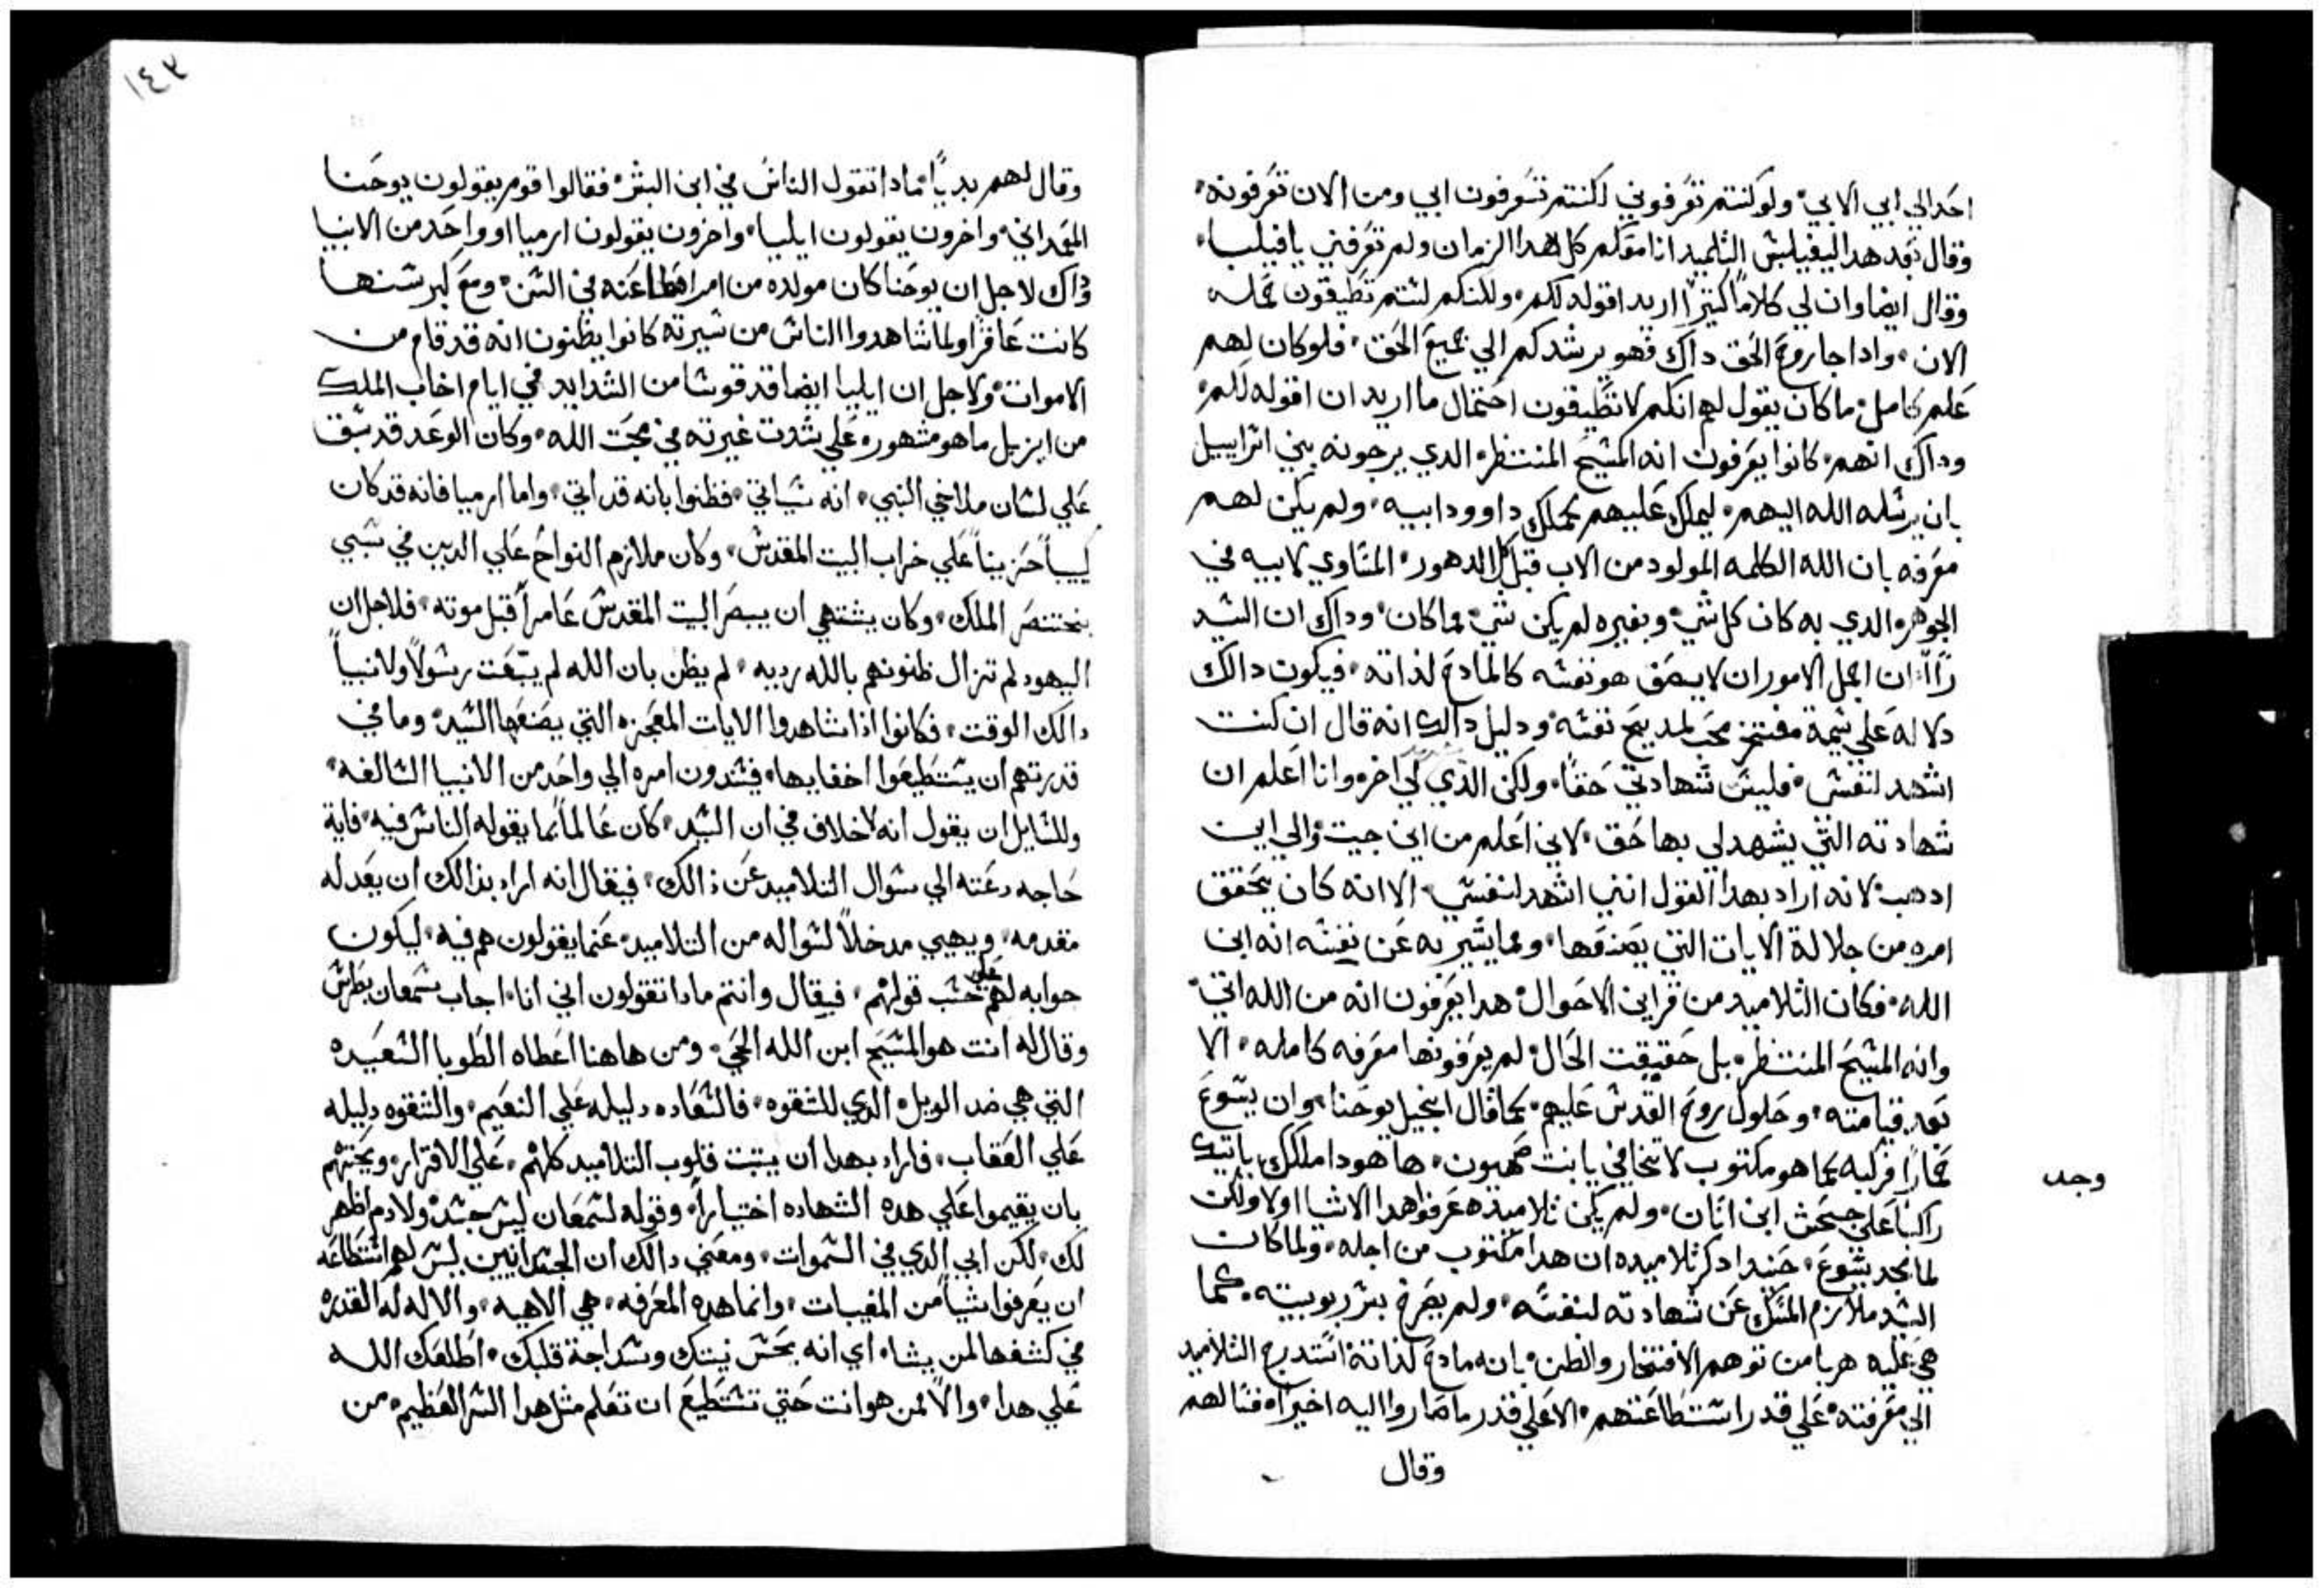 احد الي ابي الا بي ولو كنتم تعرفوني لكنتم تعرفون ابي ومن الان تعرفونه
وقال بعد هدا ليفيلبس التلميد انا معكم كل هدا الزمان ولم تعرفني يا فيلبا
وقال ايضا وان لي كلاماً كتيراً اريد اقوله لكم ولكنكم لستم تطيقون حمله
الان وادا جا روح الحق داك فهو يرشدكم الي جميع الحق فلو كان لهم
علم كامل ما كان يقول لهم انكم لا تطيقون احتمال ما اريد ان اقوله لكم
وداك انهم كانوا يعرفون انه المسيح المنتظر الدي يرجونه بني اسراييل
بان يرسله الله اليهم ليملك عليهم كملك داوود ابيه ولم يكن لهم
معرفه بان الله الكلمه المولود من الاب قبل كل الدهور المساوي لابيه في
الجوهر الدي به كان كل شي وبغيره لم يكن شي مما كان وداك ان السيد
راا ان اجمل الامور ان لا يصف هو نفسه كالمادح لذاته فيكون دالك
دلاله علي شيمة مفتخر محب لمديح نفسه ودليل دالك انه قال ان كنت
اشهد لنفسي فليس شهادتي حقاً ولكن الذي لي اخر وانا اعلم ان
شهادته التي يشهد لي بها حق لاني اعلم من اين جيت والي اين
ادهب لانه اراد بهدا القول انني اشهد لنفسي الا انه كان يحقق
امره من جلالة الايات التي يصنعها ومما يشير به عن نفسه انه ابن
الله فكان التلاميد من قراين الاحوال هدا يعرفون انه من الله اتي
وانه المسيح المنتظر بل حقيقت الحال لم يعرفونها معرفه كامله الا
بعد قيامته وحلول روح القدس عليهم كما قال انجيل يوحنا وان يسوع
وجد
حماراً فركبه كما هو مكتوب لا تخافي يا بنت صهيون ها هودا ملكك ياتيك
راكباً علي جحش ابن اتان ولم يكن تلاميده عرفوا هدا الاشيا اولا ولكن
لما مجد يسوع حنيد ادكر تلاميده ان هدا مكتوب من اجله ولما كان
السيد ملازم المسك عن شهادته لنفسه ولم يصرح بسر ربوبيته كما
هي عليه هربا من توهم الافتخار والظن بانه مادح لذاته استدرج التلاميد
الي معرفته علي قدر استطاعتهم الا علي قدر ما صاروا اليه اخيراً فسالهم
وقال
١٤٣
وقال لهم بدياً مادا تقول الناس في ابن البشر فقالوا قوم يقولون يوحنا
المعمداني واخرون يقولون ايليا واخرون يقولون ارميا او واحد من الانبيا
وداك لاجل ان يوحنا كان مولده من امراه طاعنه في السن ومع كبر سنها
كانت عاقراً ولما شاهدوا الناس من سيرته كانوا يظنون انه قد قام من
الاموات ولاجل ان ايليا ايضا قد قوسا من الشدايد في ايام اخاب الملك
من ايزبل ما هو مشهور علي شدت غيرته في محبت الله وكان الوعد قد سبق
علي لسان ملاخي النبي انه سياتي فظنوا بانه قد اتي واما ارميا فانه قد كان
كيباً حزيناً علي خراب البيت المقدس وكان ملازم النواح علي الدين في سبي
بختنصر الملك وكان يشتهي ان يبصر البيت المقدس عامراً قبل موته فلاجل ان
اليهود لم تزال ظنونهم بالله رديه لم يظن بان الله لم يبعت رسولاً ولا نبياً
دالك الوقت فكانوا اذا شاهدوا الايات المعجزه التي يصنعها السيد وما في
قدرتهم ان يستطيعوا اخفايها فيسندون امره الي واحد من الانبيا السالفه
وللسايل ان يقول انه لا خلاف في ان السيد كان عالماً بما يقوله الناس فيه فاية
حاجه دعته الي سوال التلاميد عن ذالك فيقال انه اراد بذالك ان يعد له
مقدمه ويهيي مدخلاً لسواله من التلاميد عنما يقولون هم فيه ليكون
جوابه لهم علي حسب قولهم فيقال وانتم مادا تقولون اني انا اجاب سمعان بطرس
وقال له انت هو المسيح ابن الله الحي ومن هاهنا اعطاه الطوبا السعيده
التي هي ضد الويل الدي للشقوه فالسعاده دليله علي النعيم والشقوه دليله
علي العقاب فاراد بهدا ان يتبت قلوب التلاميد كلهم علي الاقرار ويحتهم
بان يقيموا علي هده الشهاده اختياراً وقوله لسمعان ليس جسد ولا دم اظهر
لك لكن ابي الدي في السموات ومعني دالك ان الجسدانيين ليس لهم استطاعه
ان يعرفوا شياً من المغيبات وانما هده المعرفه هي الاهيه والاله له القدره
في كشفها لمن يشاء اي انه بحسن نيتك وسداجة قلبك اطلعك الله
علي هدا والا لمن هو انت حتي تستطيع ان تعلم مثل هدا السر العظيم من